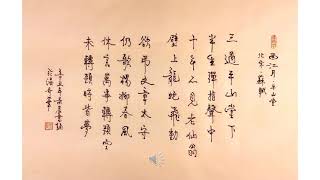 西江月 平山堂
北宋 蘇軾
三過平山堂下
半生彈指聲中
十年不見老仙翁
壁上龍蛇飛動
欲弔文章太守
仍歌楊柳春風
休言萬事轉頭空
未轉頭時皆夢